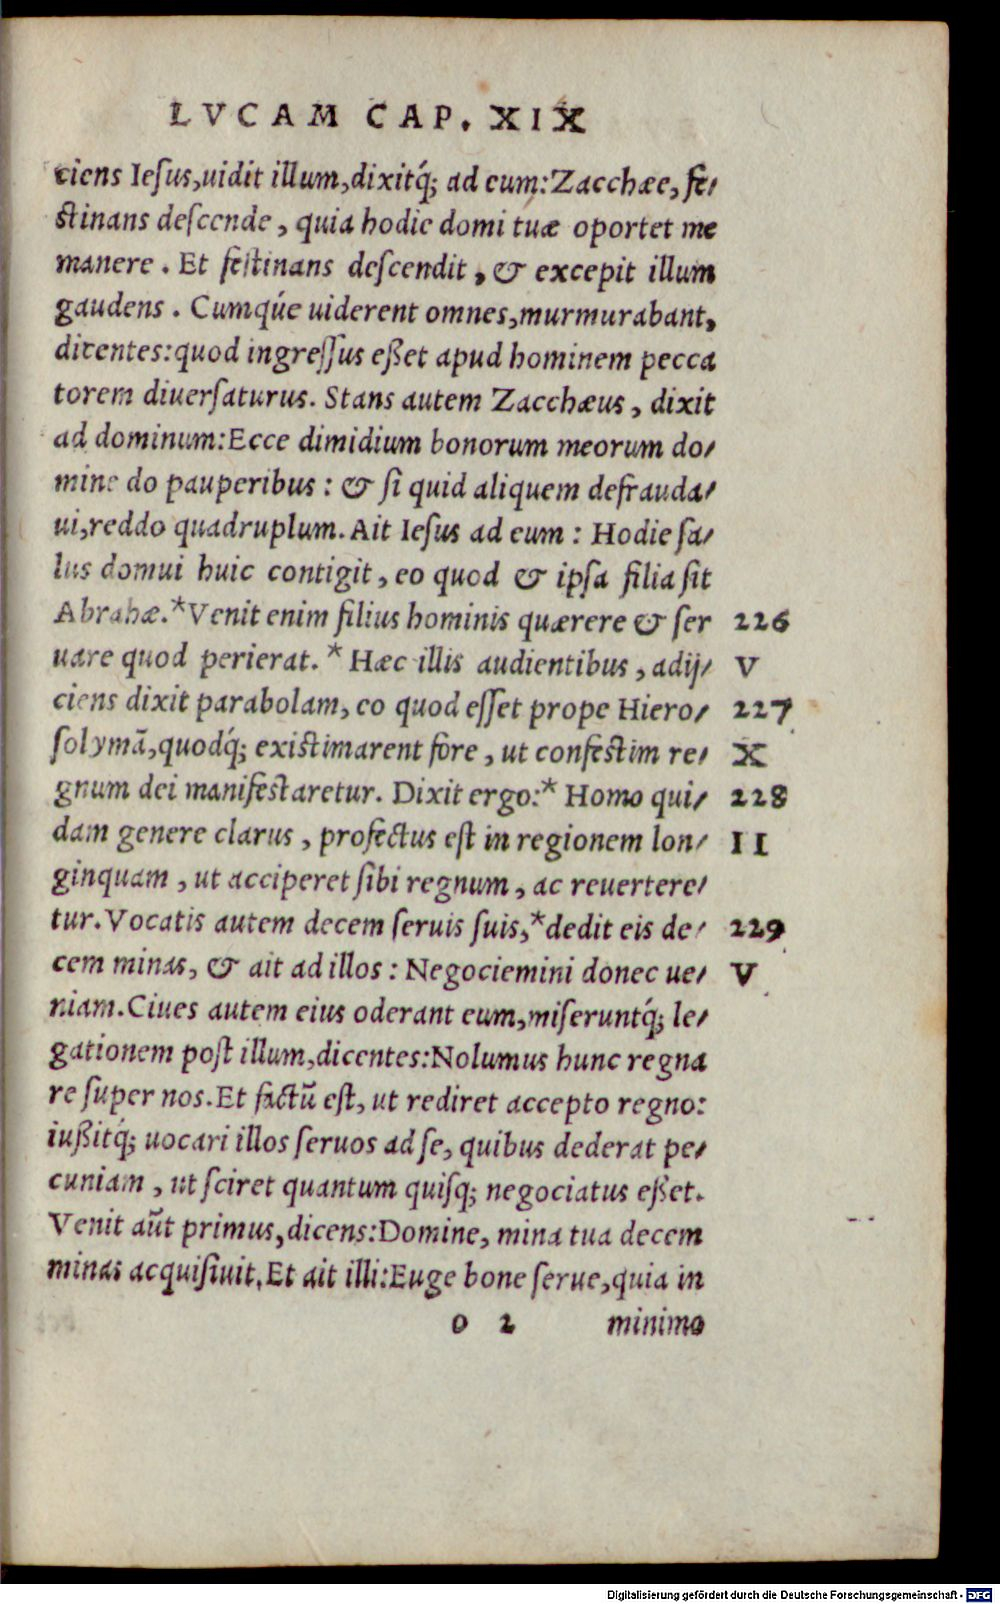 LVCAM CAP. XIX
ciens Iesus,uidit illum,dixitq́; ad eum:Zacchæe, fe/
stinans descende , quia hodie domi tuæ oportet me
manere . Et festinans descendit , & excepit illum
gaudens . Cumqúe uiderent omnes,murmurabant,
dicentes:quod ingressus eßet apud hominem pecca
torem diuersaturus. Stans autem Zacchæus , dixit
ad dominum:Ecce dimidium bonorum meorum do/
mine do pauperibus : & si quid aliquem defrauda/
ui,reddo quadruplum. Ait Iesus ad eum : Hodie sa/
lus domui huic contigit , eo quod & ipsa filia sit
Abrahæ.*Venit enim filius hominis quærere & ser 226
uare quod perierat. * Hæc illis audientibus , adij/ V
ciens dixit parabolam, eo quod esset prope Hiero/ 227
solymā,quodq́; existimarent fore , ut confestim re/ X
gnum dei manifestaretur. Dixit ergo:* Homo qui/ 228
dam genere clarus , profectus est in regionem lon/ II
ginquam , ut acciperet sibi regnum , ac reuertere/
tur. Vocatis autem decem seruis suis,*dedit eis de/ 229
cem minas, & ait ad illos : Negociemini donec ue/ V
niam.Ciues autem eius oderant eum,miseruntq́; le/
gationem post illum,dicentes:Nolumus hunc regna
re super nos.Et factū est, ut rediret accepto regno:
iußitq́; uocari illos seruos ad se, quibus dederat pe/
cuniam , ut sciret quantum quisq; negociatus eßet.
Venit aūt primus,dicens:Domine, mina tua decem
minas acquisiuit.Et ait illi:Euge bone serue,quia in
o 2 minimo
Digitalisierung gefördert durch die Deutsche Forschungsgemeinschaft - DFG